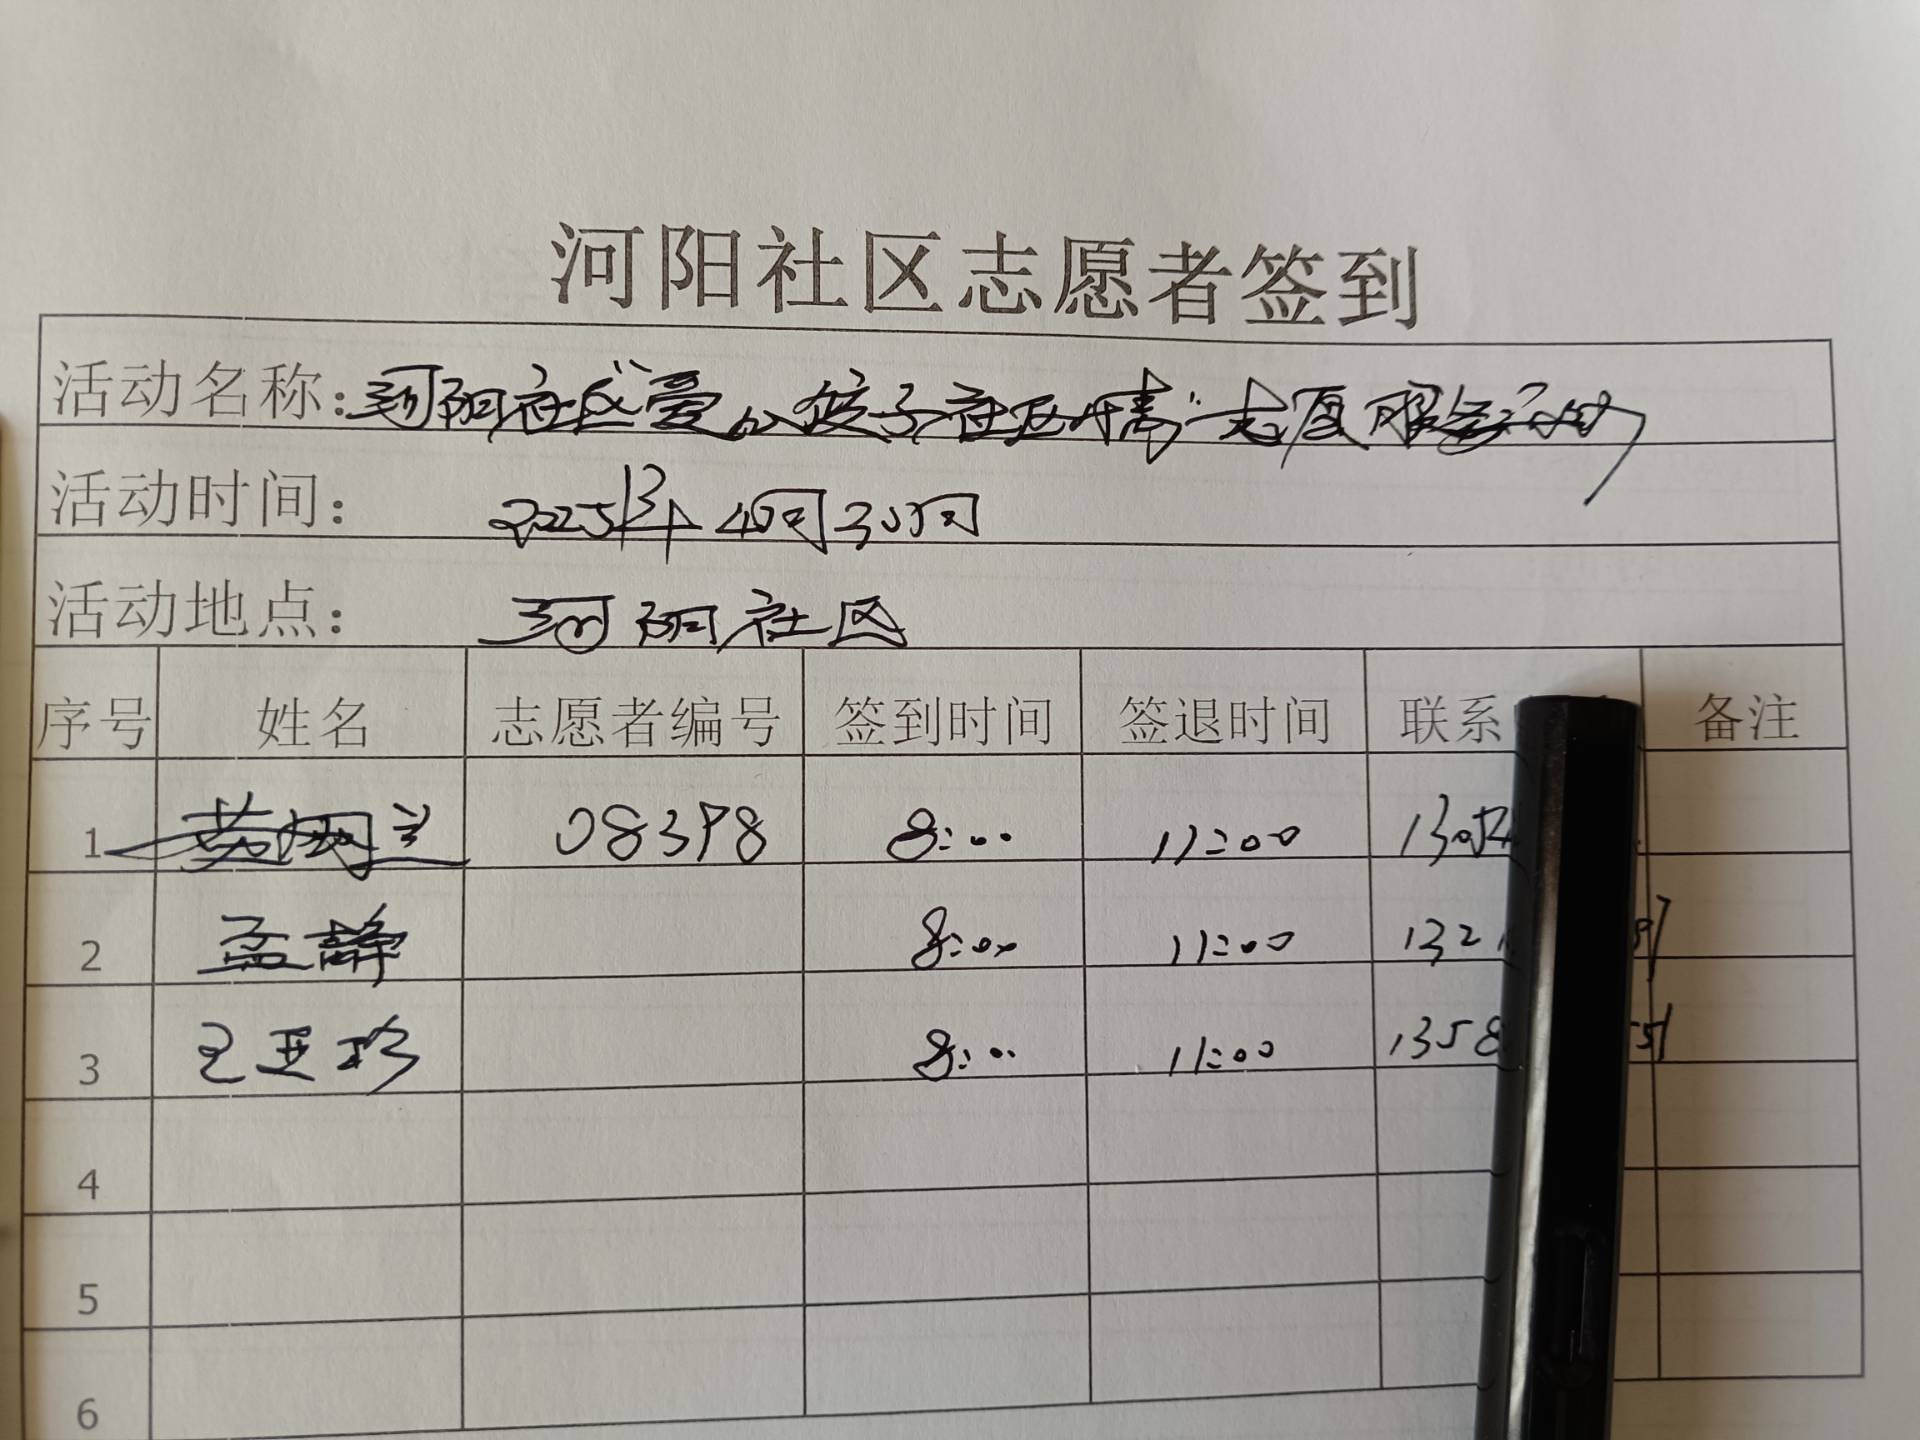 河阳社区志愿者签到
活动名称：河阳社区“爱心饺子社区情”志愿服务活动
活动时间： 2025年4月30日
活动地点： 河阳社区
序号 姓名 志愿者编号 签到时间 签退时间 联系 备注
1 08398 8:00 11:00 1305
2 孟静 8:00 11:00 132
3 王亚珍 8:00 11:00 1358 551
4
5
6